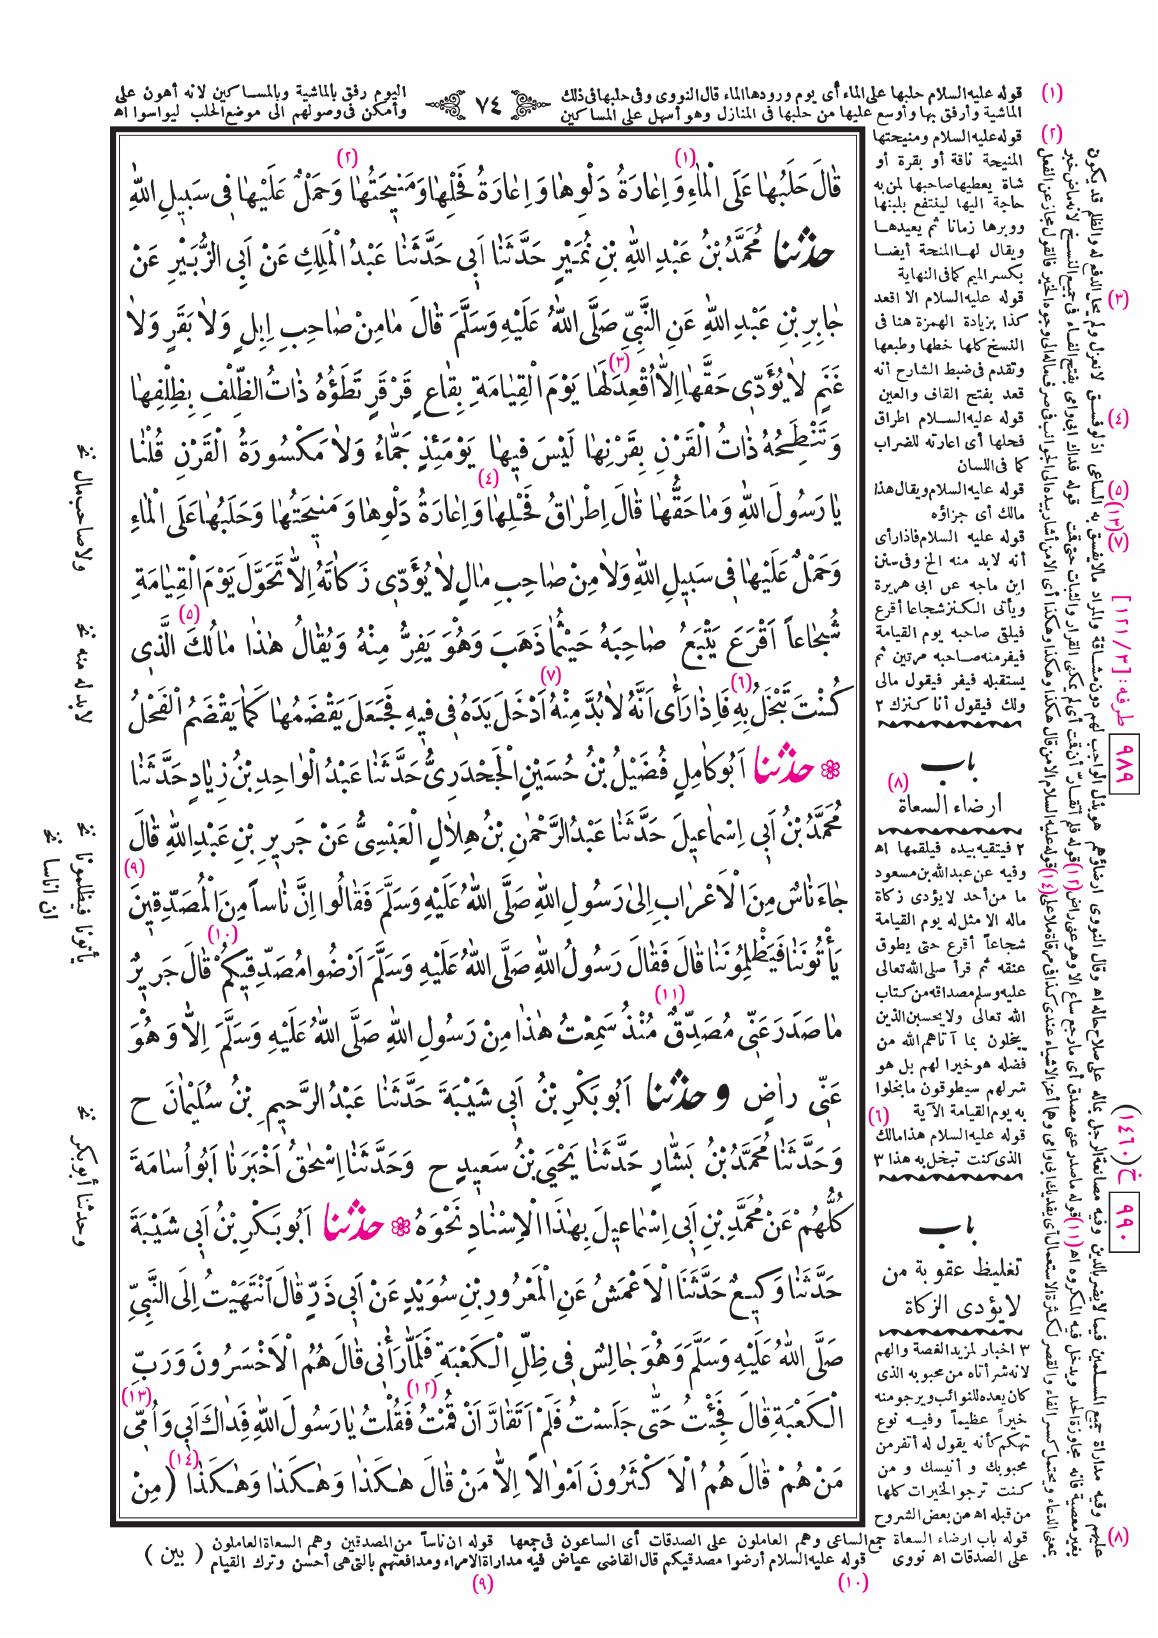 (١) قوله عليه السلام حلبها على الماء أى يوم ورودها الماء قال النووى وفى حلبها فى ذلك
الماشية وأرفق بها وأوسع عليها من حلبها فى المنازل وهو أسهل على المساكين
٧٤
اليوم رفق بالماشية وبالمساكين لانه أهون على
وأمكن فى وصولهم الى موضع الحلب ليواسوا اه
قَالَ حَلَبُهَا عَلَى الْمَاءِ (١) وَإِعَارَةُ دَلْوِهَا وَإِعَارَةُ فَحْلِهَا وَمَنِيحَتُهَا (٢) وَحَمْلٌ عَلَيْهَا فِى سَبِيلِ اللهِ
حدثنا مُحَمَّدُ بْنُ عَبْدِ اللهِ بْنِ نُمَيْرٍ حَدَّثَنَا أَبِى حَدَّثَنَا عَبْدُ الْمَلِكِ عَنْ أَبِى الزُّبَيْرِ عَنْ
جَابِرِ بْنِ عَبْدِ اللهِ عَنِ النَّبِىِّ صَلَّى اللهُ عَلَيْهِ وَسَلَّمَ قَالَ مَا مِنْ صَاحِبِ إِبِلٍ وَلَا بَقَرٍ وَلَا
غَنَمٍ لَا يُؤَدِّى حَقَّهَا إِلَّا أُقْعِدَ (٣) لَهَا يَوْمَ الْقِيَامَةِ بِقَاعٍ قَرْقَرٍ تَطَؤُهُ ذَاتُ الظِّلْفِ بِظِلْفِهَا
وَتَنْطِحُهُ ذَاتُ الْقَرْنِ بِقَرْنِهَا لَيْسَ فِيهَا يَوْمَئِذٍ جَمَّاءُ وَلَا مَكْسُورَةُ الْقَرْنِ قُلْنَا
يَا رَسُولَ اللهِ وَمَا حَقُّهَا قَالَ إِطْرَاقُ فَحْلِهَا (٤) وَإِعَارَةُ دَلْوِهَا وَمَنِيحَتُهَا وَحَلَبُهَا عَلَى الْمَاءِ
وَحَمْلٌ عَلَيْهَا فِى سَبِيلِ اللهِ وَلَا مِنْ صَاحِبِ مَالٍ لَا يُؤَدِّى زَكَاتَهُ إِلَّا تَحَوَّلَ يَوْمَ الْقِيَامَةِ
شُجَاعاً أَقْرَعَ يَتْبَعُ صَاحِبَهُ حَيْثُمَا ذَهَبَ وَهُوَ يَفِرُّ مِنْهُ وَيُقَالُ هَذَا مَالُكَ (٥) الَّذِى
كُنْتَ تَبْخَلُ بِهِ (٦) فَإِذَا رَأَى أَنَّهُ لَا بُدَّ مِنْهُ (٧) أَدْخَلَ يَدَهُ فِى فِيهِ فَجَعَلَ يَقْضَمُهَا كَمَا يَقْضَمُ الْفَحْلُ
حدثنا أَبُو كَامِلٍ فُضَيْلُ بْنُ حُسَيْنٍ الْجَحْدَرِىُّ حَدَّثَنَا عَبْدُ الْوَاحِدِ بْنُ زِيَادٍ حَدَّثَنَا
مُحَمَّدُ بْنُ أَبِى إِسْمَاعِيلَ حَدَّثَنَا عَبْدُ الرَّحْمَنِ بْنُ هِلَالٍ الْعَبْسِىُّ عَنْ جَرِيرِ بْنِ عَبْدِ اللهِ قَالَ
جَاءَ نَاسٌ مِنَ الْأَعْرَابِ إِلَى رَسُولِ اللهِ صَلَّى اللهُ عَلَيْهِ وَسَلَّمَ فَقَالُوا إِنَّ نَاساً مِنَ الْمُصَدِّقِينَ (٩)
يَأْتُونَنَا فَيَظْلِمُونَنَا قَالَ فَقَالَ رَسُولُ اللهِ صَلَّى اللهُ عَلَيْهِ وَسَلَّمَ أَرْضُوا مُصَدِّقِيكُمْ (١٠) قَالَ جَرِيرٌ
مَا صَدَرَ عَنِّى مُصَدِّقٌ مُنْذُ سَمِعْتُ (١١) هَذَا مِنْ رَسُولِ اللهِ صَلَّى اللهُ عَلَيْهِ وَسَلَّمَ إِلَّا وَهُوَ
عَنِّى رَاضٍ وحدثنا أَبُو بَكْرِ بْنُ أَبِى شَيْبَةَ حَدَّثَنَا عَبْدُ الرَّحِيمِ بْنُ سُلَيْمَانَ ح
وَحَدَّثَنَا مُحَمَّدُ بْنُ بَشَّارٍ حَدَّثَنَا يَحْيَى بْنُ سَعِيدٍ ح وَحَدَّثَنَا إِسْحَقُ أَخْبَرَنَا أَبُو أُسَامَةَ
كُلُّهُمْ عَنْ مُحَمَّدِ بْنِ أَبِى إِسْمَاعِيلَ بِهَذَا الْإِسْنَادِ نَحْوَهُ حدثنا أَبُو بَكْرِ بْنُ أَبِى شَيْبَةَ
حَدَّثَنَا وَكِيعٌ حَدَّثَنَا الْأَعْمَشُ عَنِ الْمَعْرُورِ بْنِ سُوَيْدٍ عَنْ أَبِى ذَرٍّ قَالَ انْتَهَيْتُ إِلَى النَّبِىِّ
صَلَّى اللهُ عَلَيْهِ وَسَلَّمَ وَهُوَ جَالِسٌ فِى ظِلِّ الْكَعْبَةِ فَلَمَّا رَآنِى قَالَ هُمُ الْأَخْسَرُونَ وَرَبِّ
الْكَعْبَةِ قَالَ فَجِئْتُ حَتَّى جَلَسْتُ فَلَمْ أَتَقَارَّ أَنْ قُمْتُ (١٢) فَقُلْتُ يَا رَسُولَ اللهِ فِدَاكَ أَبِى وَأُمِّى (١٣)
مَنْ هُمْ قَالَ هُمُ الْأَكْثَرُونَ أَمْوَالاً إِلَّا مَنْ قَالَ هَكَذَا وَهَكَذَا وَهَكَذَا (١٤) (مِنْ
(٢) قوله عليه السلام ومنيحتها
المنيحة ناقة أو بقرة أو
شاة يعطيها صاحبها لمن به
حاجة اليها لينتفع بلبنها
ووبرها زمانا ثم يعيدها
ويقال لها المنحة أيضا
بكسر الميم كما فى النهاية
(٣) قوله عليه السلام الا اقعد
كذا بزيادة الهمزة هنا فى
النسخ كلها خطها وطبعها
وتقدم فى ضبط الشارح أنه
قعد بفتح القاف والعين
(٤) قوله عليه السلام اطراق
فحلها أى اعارته للضراب
كما فى اللسان
(٥) قوله عليه السلام ويقال هذا
مالك أى جزاؤه
قوله عليه السلام فاذا رأى
أنه لابد منه الخ وفى سنن
ابن ماجه عن ابى هريرة
ويأتى الكنز شجاعا أقرع
فيلقى صاحبه يوم القيامة
فيفر منه صاحبه مرتين ثم
يستقبله فيفر فيقول مالى
ولك فيقول أنا كنزك ٢
باب
(٨)
أرضاء السعاة
٢ فيتقيه بيده فيلقمها اه
وفيه عن عبدالله بن مسعود
ما من أحد لايؤدى زكاة
ماله الا مثل له يوم القيامة
شجاعاً أقرع حتى يطوق
عنقه ثم قرأ صلى الله تعالى
عليه وسلم مصداقه من كتاب
الله تعالى ولا يحسبن الذين
يبخلون بما آتاهم الله من
فضله هو خيرا لهم بل هو
شر لهم سيطوقون ما بخلوا
به يوم القيامة الآية
(٦) قوله عليه السلام هذا مالك
الذى كنت تبخل به هذا ٣
باب
تغليظ عقوبة من
لا يؤدى الزكاة
٣ اخبار لمزيد الغصة والهم
لانه شر أتاه من محبوبه الذى
كان يعده للنوائب ويرجو منه
خيراً عظيماً وفيه نوع
تهكم كأنه يقول له أتفر من
محبوبك و أنيسك و من
كنت ترجو الخيرات كلها
من قبله اه من بعض الشروح
(٨) قوله باب ارضاء السعاة جمع الساعى وهم العاملون على الصدقات أى الساعون فى جمعها قوله ان ناساً من المصدقين وهم السعاة العاملون
على الصدقات اه نووى قوله عليه السلام أرضوا مصدقيكم قال القاضى عياض فيه مداراة الامراء ومدافعتهم بالتى هى أحسن وترك القيام ( بين )
(١٠)
(٩)
ولا صاحب مال نخ
لابد له منه نخ
يأتونا فيظلمونا نخ
ان اناسا نخ
وحدثنا أبو بكر نخ
طرفه: [٣/١٢١]
٩٨٩
خ(١٤٦٠)
٩٩٠